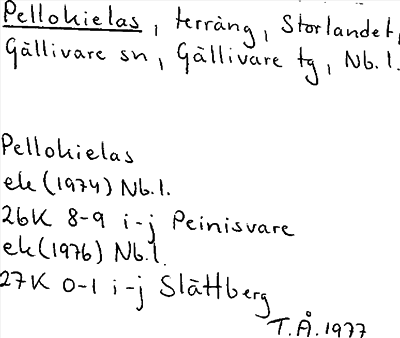 Pellokielas, terräng, Storlandet,
Gällivare sn, Gällivare tg, Nb.l.
Pellokielas
ek(1974) Nb.l.
26K 8-9 i-j Peinisvare
ek(1976) Nb.l.
27K 0-1 i-j Slättberg
T.Å.1977